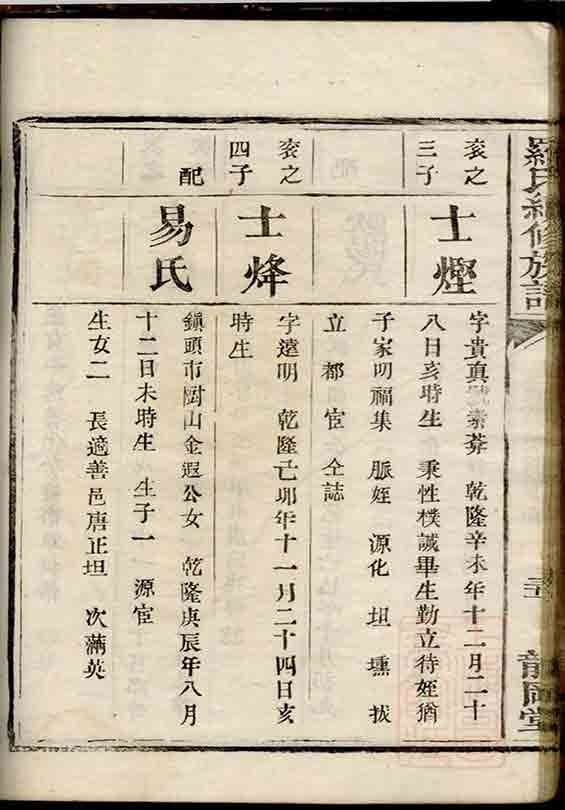 羅氏續修族譜
龍岡堂
袞之
三子
士熞
字貴真號素莽 乾隆辛未年十二月二十
八日亥時生 秉性樸誠畢生勤立待姪猶
子家明福集 脈姪 源化 坦 壎 拔
立 都 宦 仝誌
袞之
四子
士烽
字遠明 乾隆己卯年十一月二十四日亥
時生
配
易氏
鎮頭市廚山金遐公女 乾隆庚辰年八月
十二日未時生 生子一 源宦
生女二 長適善邑唐正坦 次滿英